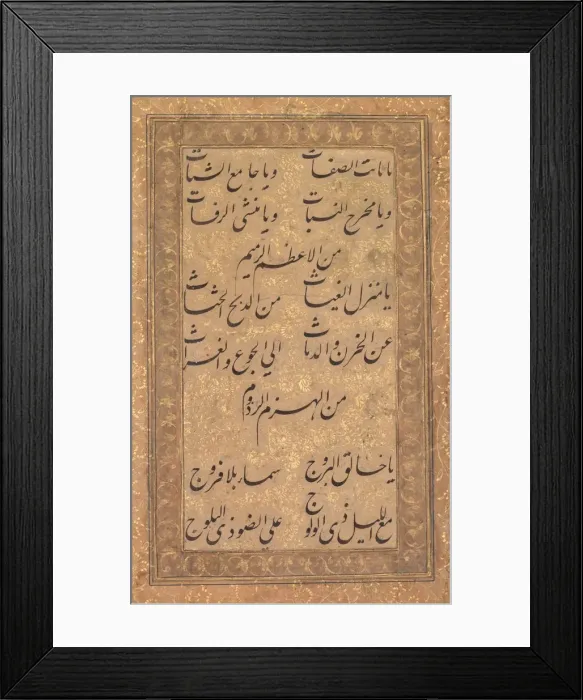 يا ثابت الصفات ويا جامع الشتات
ويا مخرج النبات ويا منشى الرفات
من الاعظم الرميم
يا منزل الغياث من الدلح الحثاث
عن الحزن والدماث الي الجوع والغراث
من الهزم الرذوم
يا خالق البروج سما بلا فروج
مع الليل ذي الولوج علي الضو ذي البلوج